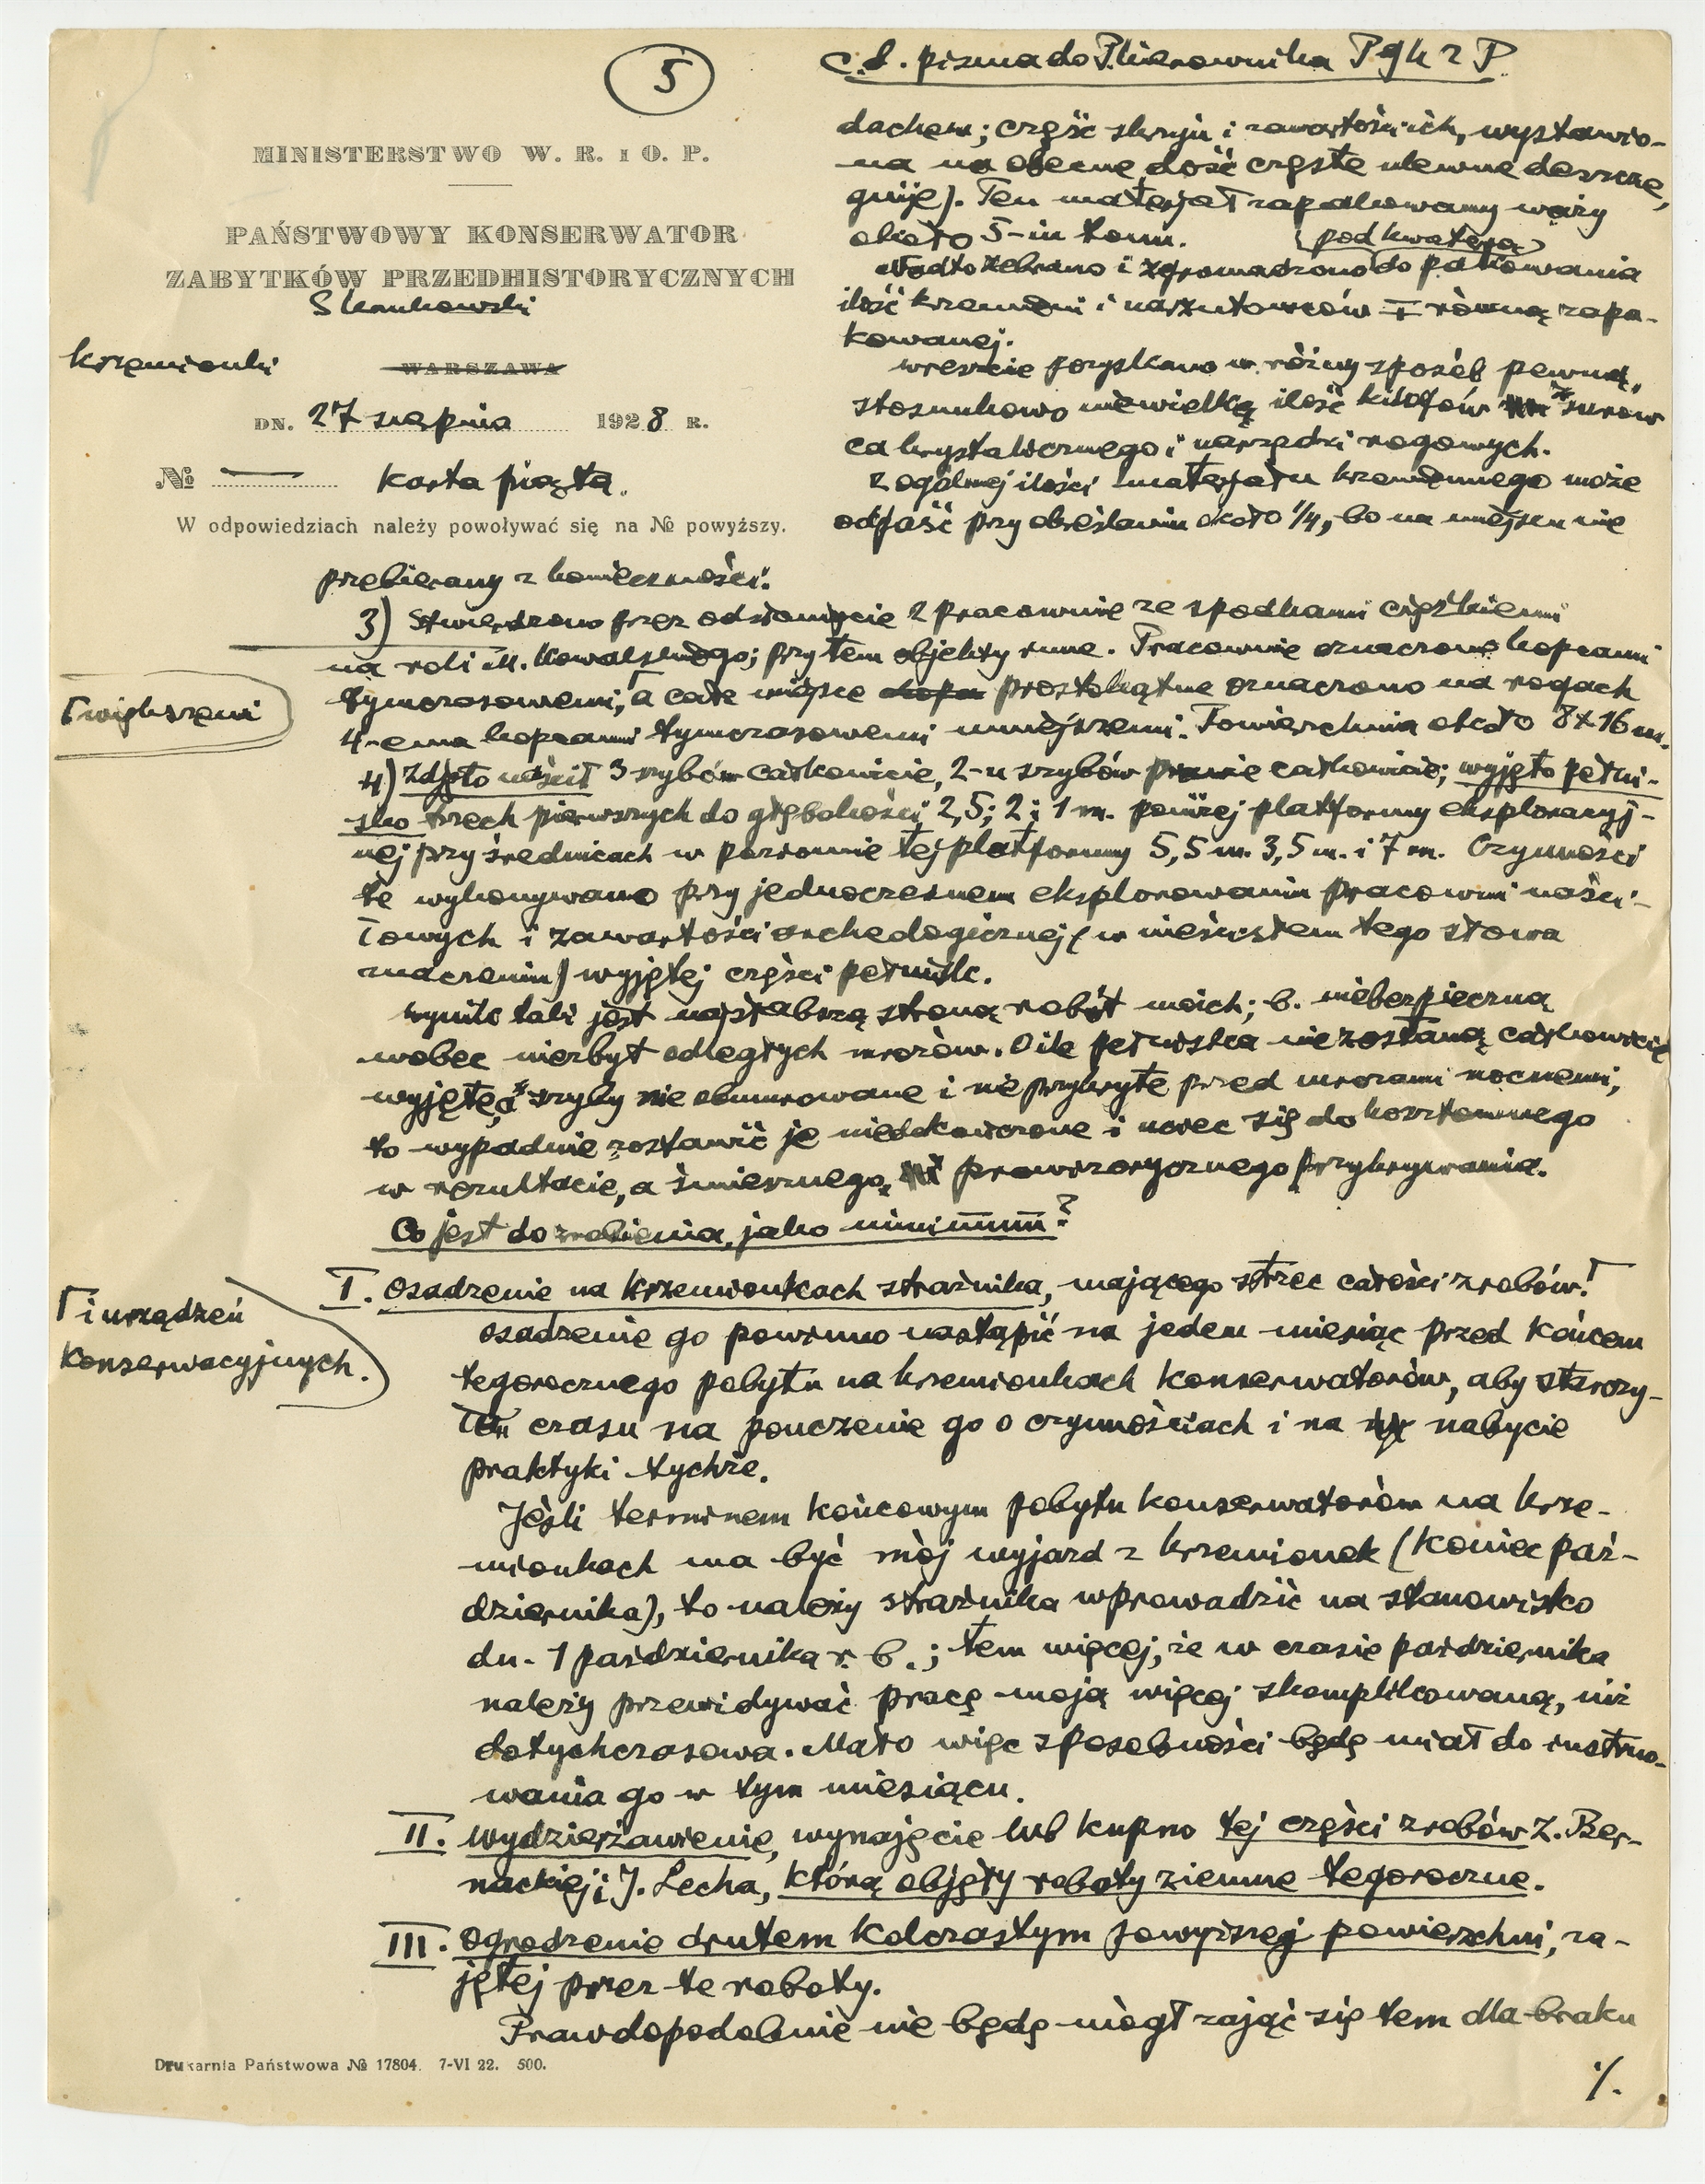 5
c. d. pisma do P. Kierownika P g k z P.
MINISTERSTWO W. R. I O. P.
PAŃSTWOWY KONSERWATOR
ZABYTKÓW PRZEDHISTORYCZNYCH
Krzemionki
WARSZAWA
DN. 27 sierpnia 1928 R.
№ — Karta piąta.
W odpowiedziach należy powoływać się na № powyższy.
dachem; część skrzyń i zawartości ich, wystawio-
na na obecne dość częste ulewne deszcze,
gnije). Ten materjał zapakowany waży
około 5-iu tonn.
(pod kwaterą)
Nadto zebrano i zgromadzono do pakowania
ilość krzemieni i narzutowców równą zapa-
kowanej.
Wreszcie pozyskano w różny sposób pewną,
stosunkowo niewielką ilość kilofów z surow
ca krystalicznego i narzędzi rogowych.
Z ogólnej ilości materjału krzemiennego może
odpaść przy określaniu około 1/4, bo na miejscu nie
przebierany z konieczności.
3) Stwierdzono przez odsłonięcie 2 pracownie ze spodkami ciężkiemi
na roli M. Kowalskiego; przytem objekty inne. Pracownie oznaczono kopcami
Γ większemi
tymczasowemi,Γ a całe miejsce prostokątne oznaczono na rogach
4-ema kopcami tymczasowemi mniejszemi. Powierzchnia około 8x16 m.
4) Zdjęto naścił 3 szybów całkowicie, 2-u szybów prawie całkowicie; wyjęto pełni-
sko trzech pierwszych do głębokości 2,5; 2 i 1 m. poniżej platformy eksploracyj-
nej przy średnicach w poziomie tej platformy 5,5 m. 3,5 m. i 7 m. Czynności
te wykonywano przy jednoczesnem eksplorowaniu pracowni naści-
łowych i zawartości archeologicznej (w ścisłem tego słowa
znaczeniu) wyjętej części pełnisk.
Wynik taki jest najsłabszą stroną robót moich; b. niebezpieczną
wobec niezbyt odległych mrozów. O ile pełniska nie zostaną całkowicie
wyjęte, a szyby nie obmurowane i nie przykryte przed mrozami nocnemi,
to wypadnie zostawić je niedokończone i uciec się do kosztownego
w rezultacie, a śmiesznego, prowizorycznego przykrywania.
Co jest do zrobienia, jako minimum?
I. Osadzenie na Krzemionkach strażnika, mającego strzec całości zrobów.Γ
Γ i urządzeń
konserwacyjnych.
Osadzenie go powinno nastąpić na jeden miesiąc przed końcem
tegorocznego pobytu na Krzemionkach konserwatorów, aby starczy-
ło czasu na pouczenie go o czynnościach i na nabycie
praktyki tychże.
Jeśli terminem końcowym pobytu konserwatorów na Krze-
mionkach ma być mój wyjazd z Krzemionek (koniec paź-
dziernika), to należy strażnika wprowadzić na stanowisko
dn. 1 października r. b.; tem więcej, że w czasie października
należy przewidywać pracę moją więcej skomplikowaną, niż
dotychczasowa. Mało więc sposobności będę miał do instruo-
wania go w tym miesiącu.
II. Wydzierżawienie, wynajęcie lub kupno tej części zrobów Z. Ber-
nackiej i J. Lecha, którą objęły roboty ziemne tegoroczne.
III. Ogrodzenie drutem kolczastym powyższej powierzchni, za-
jętej przez te roboty.
Prawdopodobnie nie będę mógł zająć się tem dla braku
Drukarnia Państwowa № 17804. 7-VI 22. 500.
./.